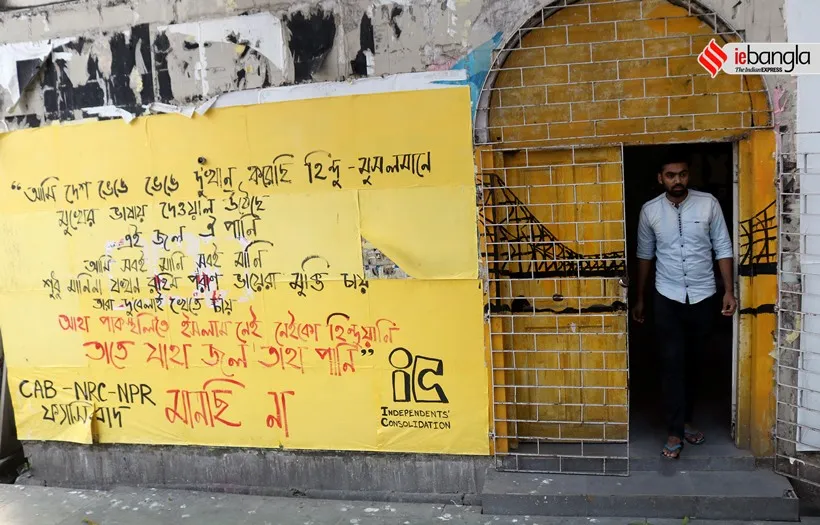 iebangla
The Indian EXPRESS
"আমি দেশ ভেঙে ভেঙে দু'খান করেছি হিন্দু - মুসলমানে
মুখের ভাষায় দেওয়াল উঠেছে
এই জল ঐ পানি
আমি সবই মানি সবই মানি
শুধু মানিনা যখন রহিম পরাণ ভায়েরা মুক্তি চায়
তারা দুবেলাই খেতে চায়
আহা পাকস্থলিতে ইসলাম নেই নেইকো হিন্দুয়ানি
তাতে যাহা জল তাহা পানি"
CAB -NRC-NPR
ফ্যাসিবাদ মানছি না
ic
INDEPENDENTS'
CONSOLIDATION